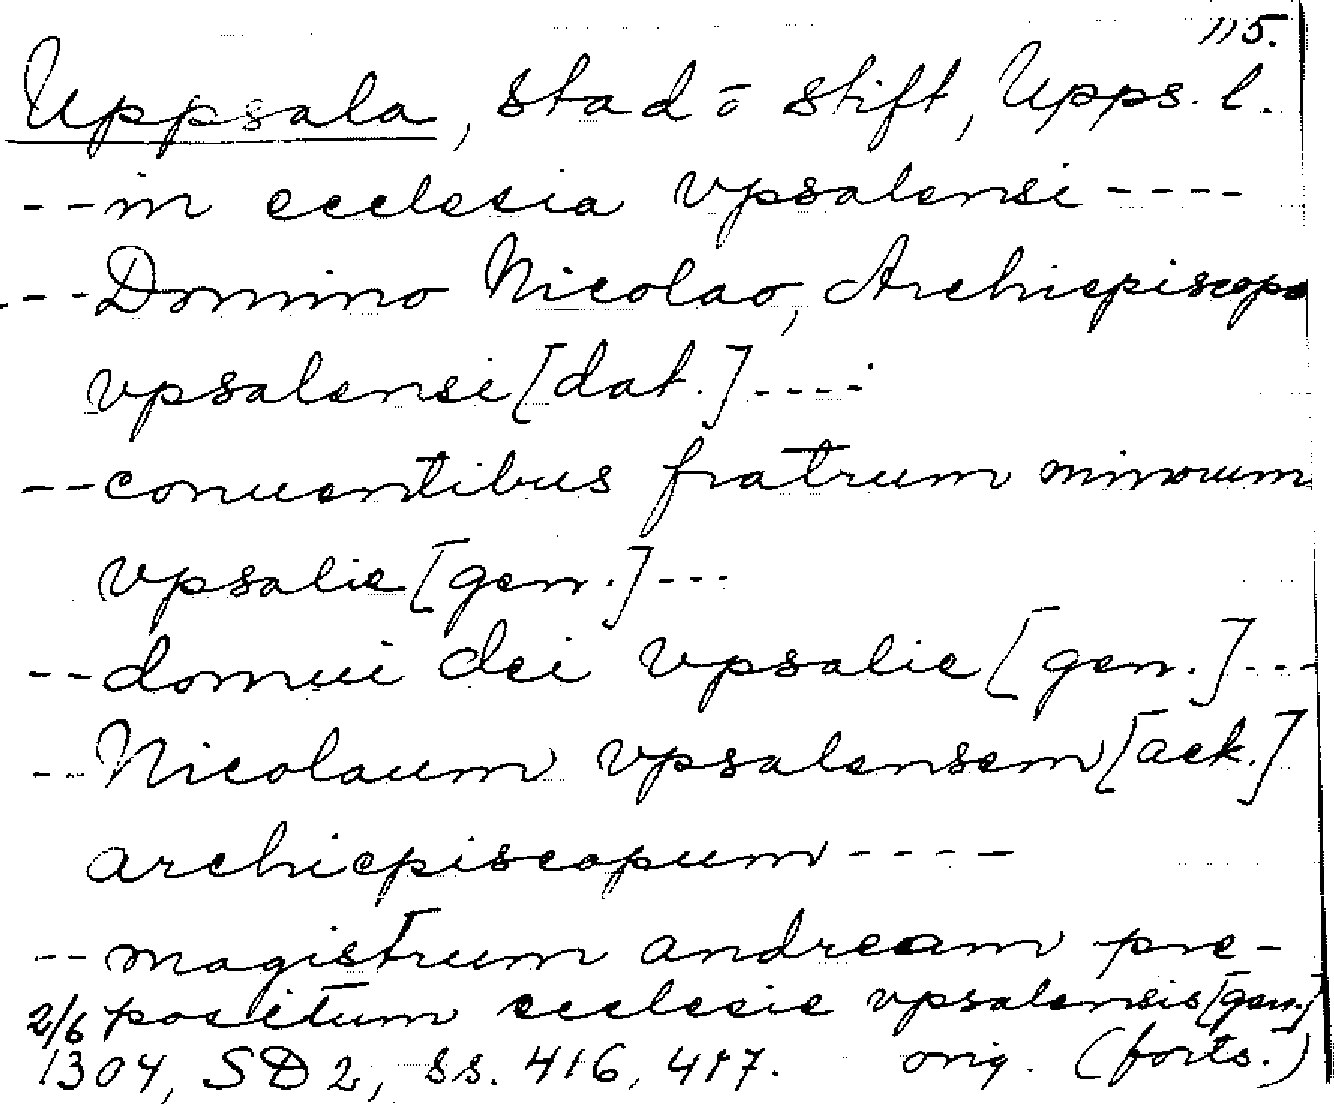 115.
Uppsala, stad o stift, Upps. l.
--in ecclesia vpsalensi----
---Domino Nicolao, Archiepiscopo
vpsalensi [dat.]----
--conuentibus fratrum minorum
vpsalie [gen.]---
--domui dei vpsalie [gen.]---
--Nicolaum vpsalensem [ack.]
archiepiscopum----
--magistrum andream pre-
positum ecclesie vpsalensis [gen.]
2/6 1304, SD 2, ss. 416, 417. orig. (forts.)